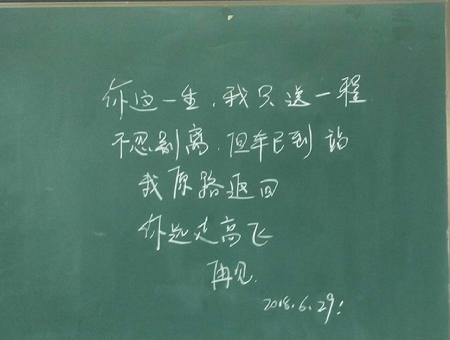 你这一生，我只送一程
不忍别离，但车已到站
我原路返回
你远走高飞
再见.
2018.6.29!